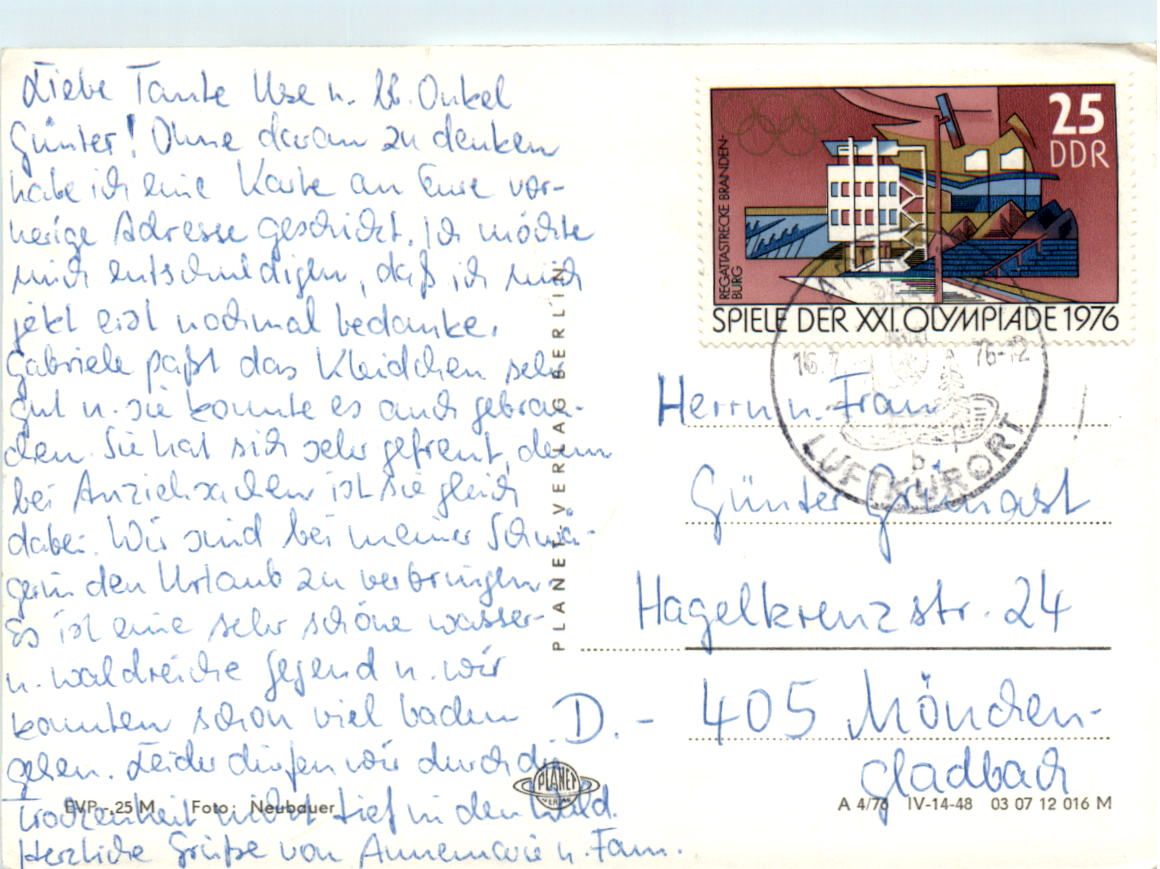 Liebe Tante Ilse u. lb. Onkel
Günter! Ohne daran zu denken
habe ich eine Karte an Eure vor-
herige Adresse geschickt. Ich möchte
mich entschuldigen, daß ich mich
jetzt erst nochmal bedanke.
Gabriele paßt das Kleidchen sehr
gut u. sie konnte es auch gebrau-
chen. Sie hat sich sehr gefreut, denn
bei Anziehsachen ist sie gleich
dabei. Wir sind bei meiner Schwä-
gerin den Urlaub zu verbringen.
Es ist eine sehr schöne wasser-
u. waldreiche Gegend u. wir
konnten schon viel baden
gehen. Leider dürfen wir durch die
Trockenheit nicht tief in den Wald.
Herzliche Grüße von Annemarie u. Fam.
PLANET-VERLAG BERLIN
EVP -,25 M Foto: Neubauer
PLANET
VERLAG
25
DDR
REGATTASTRECKE BRANDEN-
BURG
SPIELE DER XXI. OLYMPIADE 1976
16.7. 76-12
LUFTKURORT
Herrn u. Frau
Günter
Hagelkreuzstr. 24
D.- 405 Mönchen-
gladbach
A 4/76 IV-14-48 03 07 12 016 M